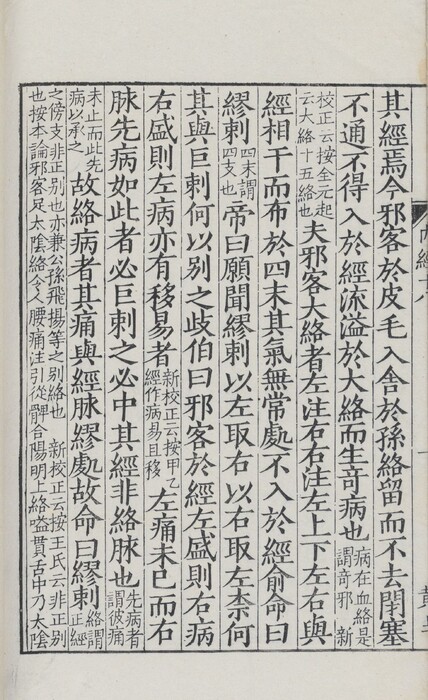 其經焉今邪客於皮毛入舍於孫絡留而不去閉塞
不通不得入於經流溢於大絡而生竒病也病在血絡是謂竒邪 新
校正云按全元起云大絡十五絡也夫邪客大絡者左注右右注左上下左右與
經相干而布於四末其氣無常處不入於經俞命曰
繆刺四末謂四支也帝曰願聞繆刺以左取右以右取左柰何
其與巨刺何以别之歧伯曰邪客於經左盛則右病
右盛則左病亦有移易者新校正云按甲乙經作病易且移左痛未已而右
脉先病如此者必巨刺之必中其經非絡脉也先病者謂彼痛
未止而此先病以承之故絡病者其痛與經脉繆處故命曰繆刺絡謂正經
之傍支非正别也亦兼公孫飛揚等之别絡也 新校正云按王氏云非正别
也按本論邪客足太陰絡令人腰痛注引從髀合陽明上絡嗌貫舌中乃太陰